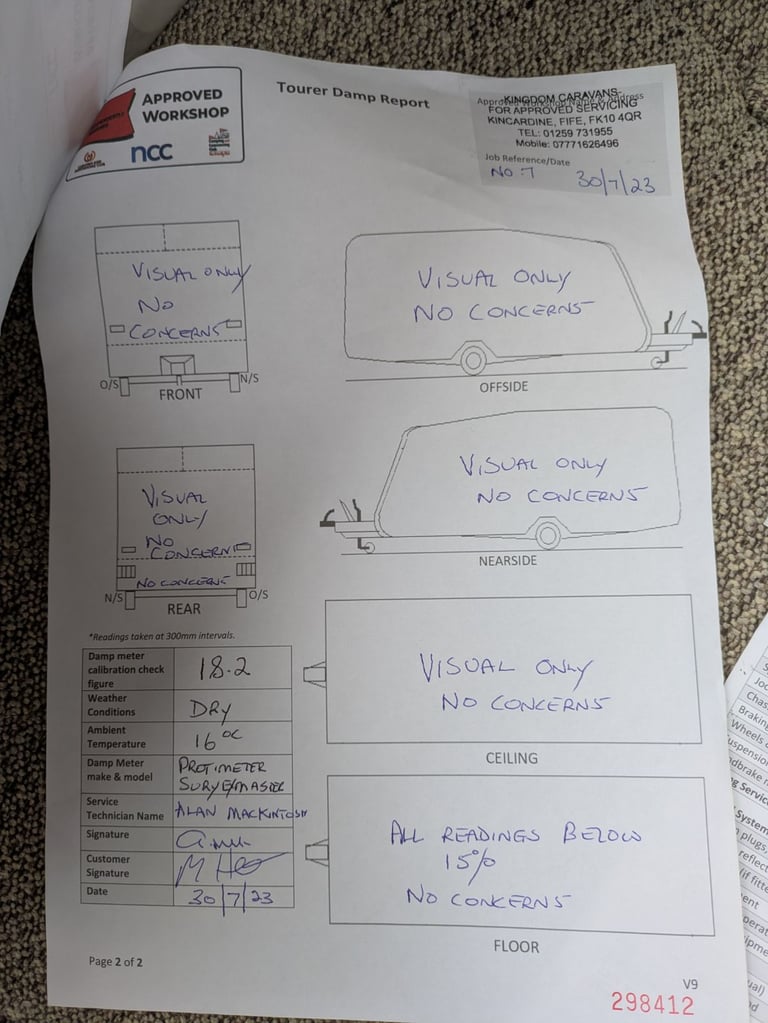 APPROVED
WORKSHOP
ncc
Tourer Damp Report
KINGDOM CARAVANS
FOR APPROVED SERVICING
KINCARDINE, FIFE, FK10 4QR
TEL: 01259 731955
Mobile: 07771626496
Job Reference/Date
No: 7 30/7/23
VISUAL ONLY
NO
CONCERNS
O/S
N/S
FRONT
VISUAL ONLY
NO CONCERNS
OFFSIDE
VISUAL
ONLY
NO
CONCERN
NO CONCERNS
N/S
O/S
REAR
VISUAL ONLY
NO CONCERNS
NEARSIDE
*Readings taken at 300mm intervals.
Damp meter
calibration check
figure
18.2
Weather
Conditions
DRY
Ambient
Temperature
16°C
Damp Meter
make & model
PROTIMETER
SURVEYMASTER
Service
Technician Name
ALAN MACKINTOSH
Signature
Customer
Signature
Date
30/7/23
VISUAL ONLY
NO CONCERNS
CEILING
ALL READINGS BELOW
15%
NO CONCERNS
FLOOR
Page 2 of 2
V9
298412